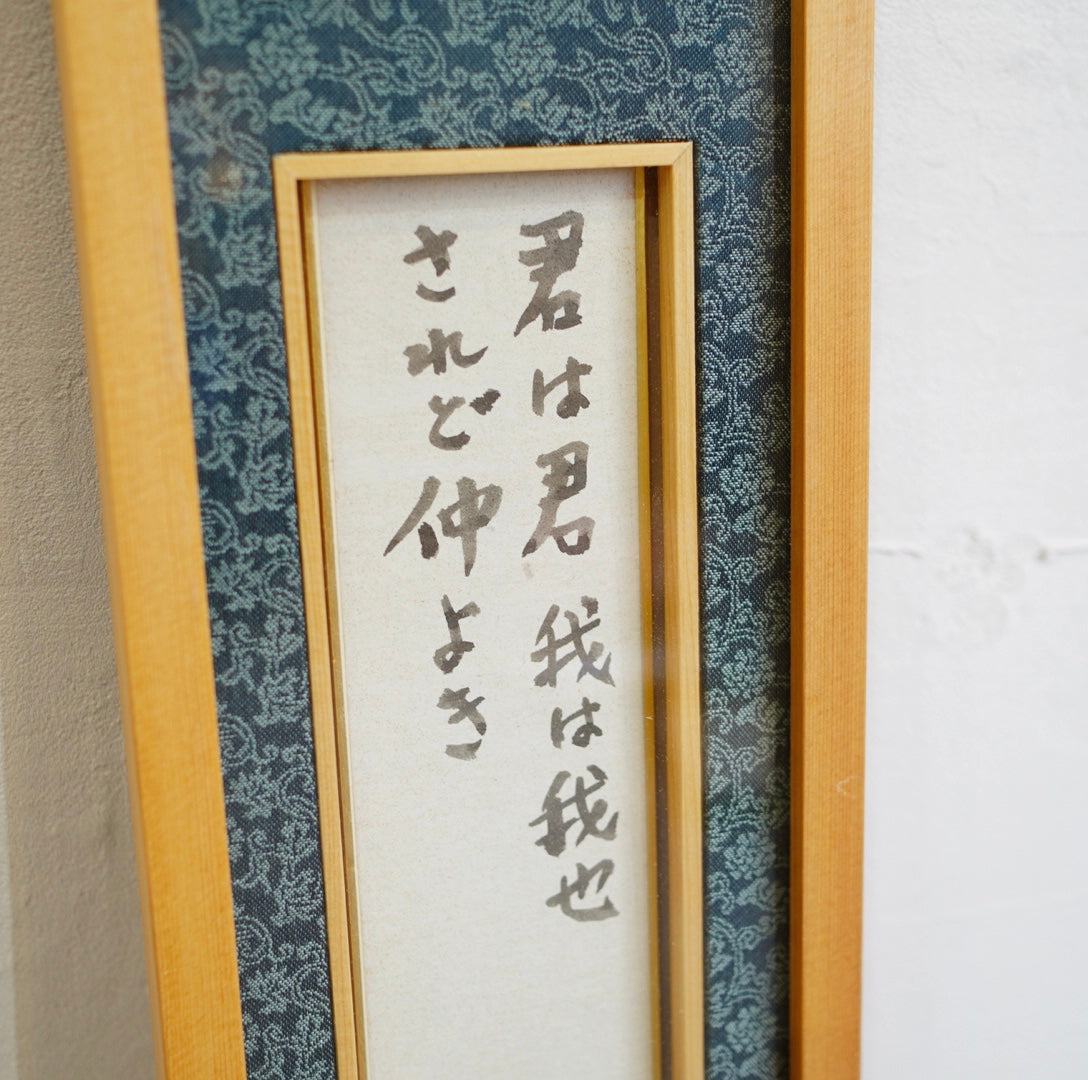 君は君我は我也
されど仲よき